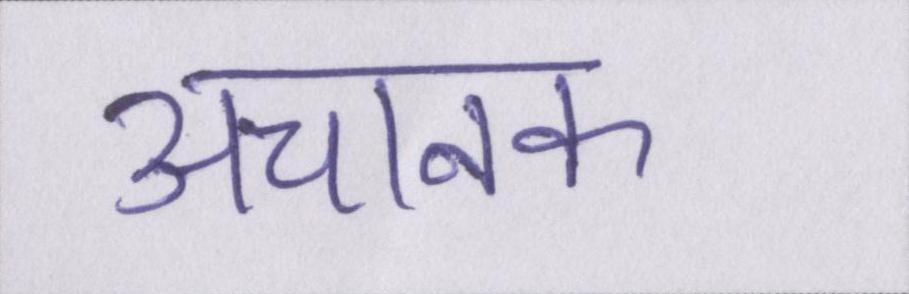 अचानक